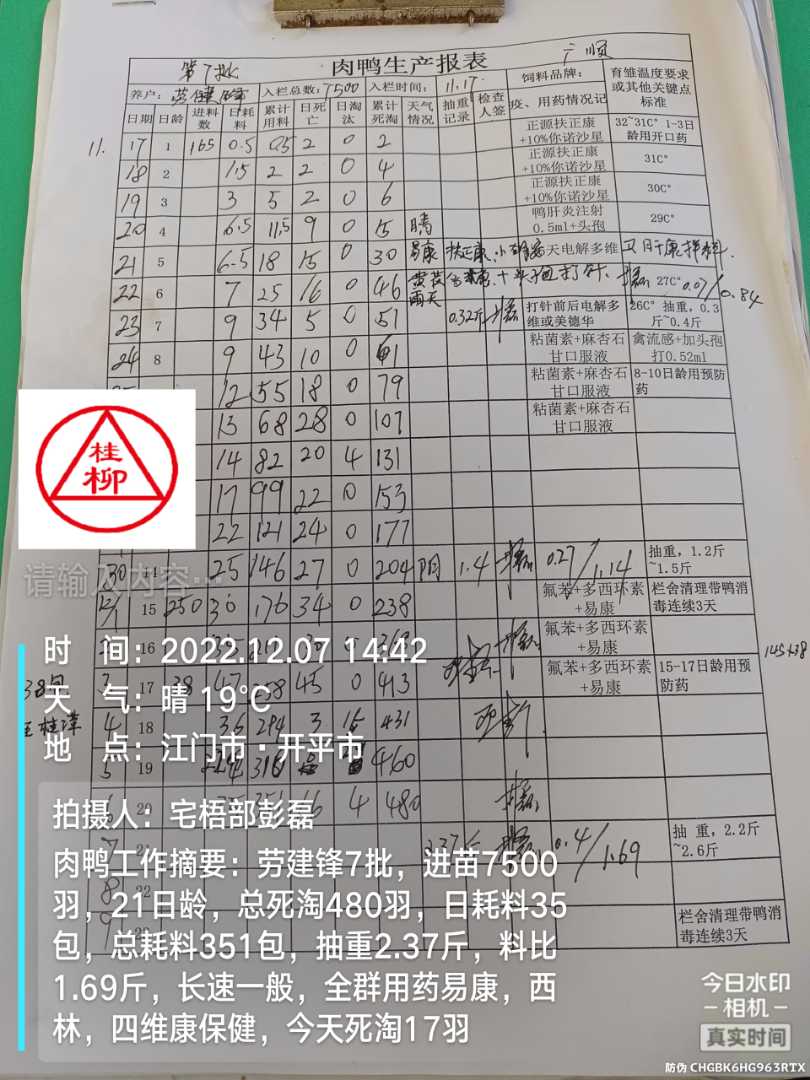 第7批 肉鸭生产报表 广顺
养户: 劳建锋 入栏总数: 7500 入栏时间: 11.17 饲料品牌: 育雏温度要求或其他关键点标准
日期 日龄 进料数 日耗料 累计用料 日死亡 日淘汰 累计死淘 天气情况 抽重记录 检查人签 疫、用药情况记
11. 17 1 165 0.5 0.5 2 0 2 正源扶正康+10%你诺沙星 32~31C° 1-3日龄用开口药
18 2 1.5 2 2 0 4 正源扶正康+10%你诺沙星 31C°
19 3 3 5 2 0 6 正源扶正康+10%你诺沙星 30C°
20 4 6.5 11.5 9 0 15 晴 鸭肝炎注射0.5ml+头孢 29C°
21 5 6.5 18 15 0 30 易康 扶正康 天电解多维
22 6 7 25 16 0 46 雨天 打针 27C° 0.07/0.84
23 7 9 34 5 0 51 0.32斤 打针前后电解多维或美德华 26C° 抽重,0.3斤~0.4斤
24 8 9 43 10 0 61 粘菌素+麻杏石甘口服液 禽流感+加头孢打0.52ml
12 55 18 0 79 粘菌素+麻杏石甘口服液 8-10日龄用预防药
13 68 28 0 107 粘菌素+麻杏石甘口服液
14 82 20 4 131
17 99 22 0 153
22 121 24 0 177
30 14 25 146 27 0 204 阴 1.4 0.27/1.14 抽重,1.2斤~1.5斤
12/1 15 250 30 176 34 0 238 氟苯+多西环素+易康 栏舍清理带鸭消毒连续3天
16 氟苯+多西环素+易康
3 17 38 47 258 45 0 413 氟苯+多西环素+易康 15-17日龄用预防药 145+38
4 18 36 294 3 15 431
5 19 24 318 460
20 351 16 4 480
7 21 2.37斤 0.4/1.69 抽 重,2.2斤~2.6斤
8 22
9 23 栏舍清理带鸭消毒连续3天
桂柳
请输入内容…
时 间: 2022.12.07 14:42
天 气: 晴 19℃
地 点: 江门市·开平市
拍摄人: 宅梧部彭磊
肉鸭工作摘要: 劳建锋7批,进苗7500
羽,21日龄,总死淘480羽,日耗料35
包,总耗料351包,抽重2.37斤,料比
1.69斤,长速一般,全群用药易康,西
林,四维康保健,今天死淘17羽
今日水印
-相机-
真实时间
防伪 CHGBK6HG963RTX